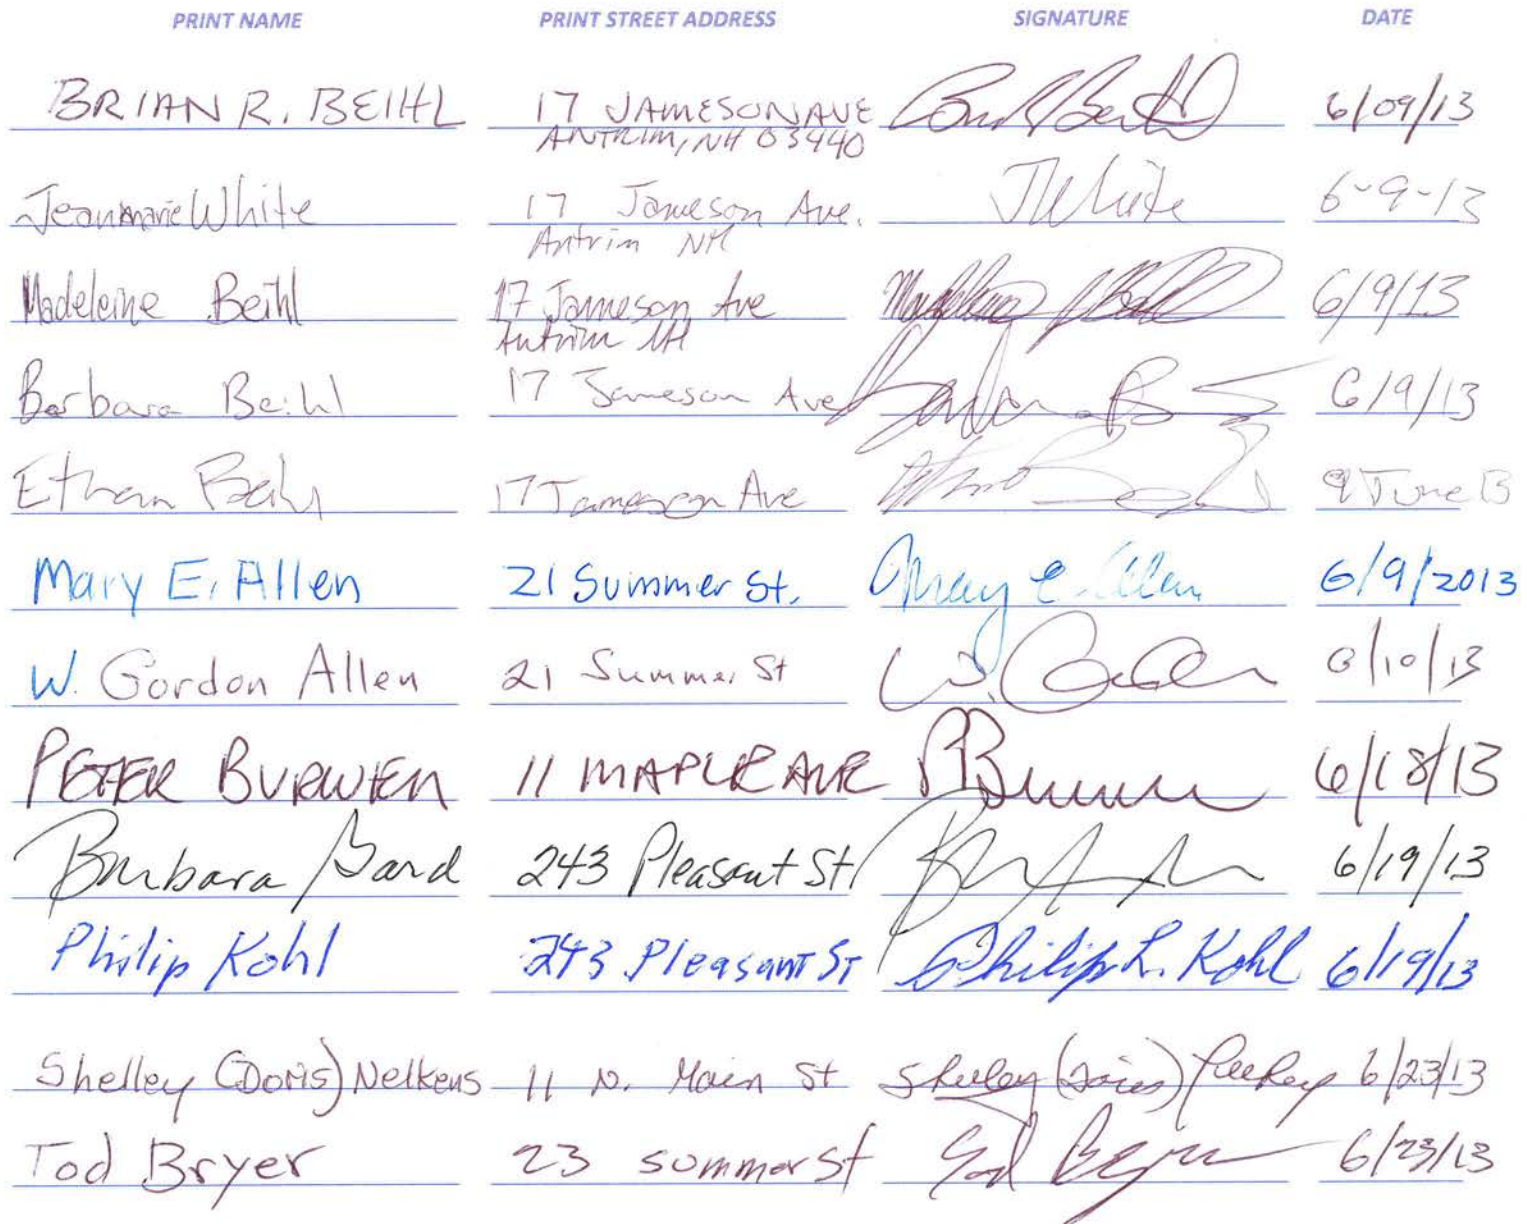 PRINT NAME PRINT STREET ADDRESS SIGNATURE DATE
BRIAN R. BEIHL 17 JAMESON AVE 6/09/13
ANTRIM, NH 03440
Jeanmarie White 17 Jameson Ave. JWhite 6-9-13
Antrim NH
Madeleine Beihl 17 Jameson Ave Madeleine Beihl 6/9/13
Antrim NH
Barbara Beihl 17 Jameson Ave 6/9/13
Ethan Beihl 17 Jameson Ave 9 June 13
Mary E. Allen 21 Summer St. Mary E. Allen 6/9/2013
W. Gordon Allen 21 Summer St 6/10/13
PETER BURWEN 11 MAPLE AVE 6/18/13
Barbara Gard 243 Pleasant St 6/19/13
Philip Kohl 243 Pleasant St Philip L. Kohl 6/19/13
Shelley (Doris) Nelkens 11 N. Main St Shelley (Doris) 6/23/13
Tod Bryer 23 summer St Tod Bryer 6/23/13